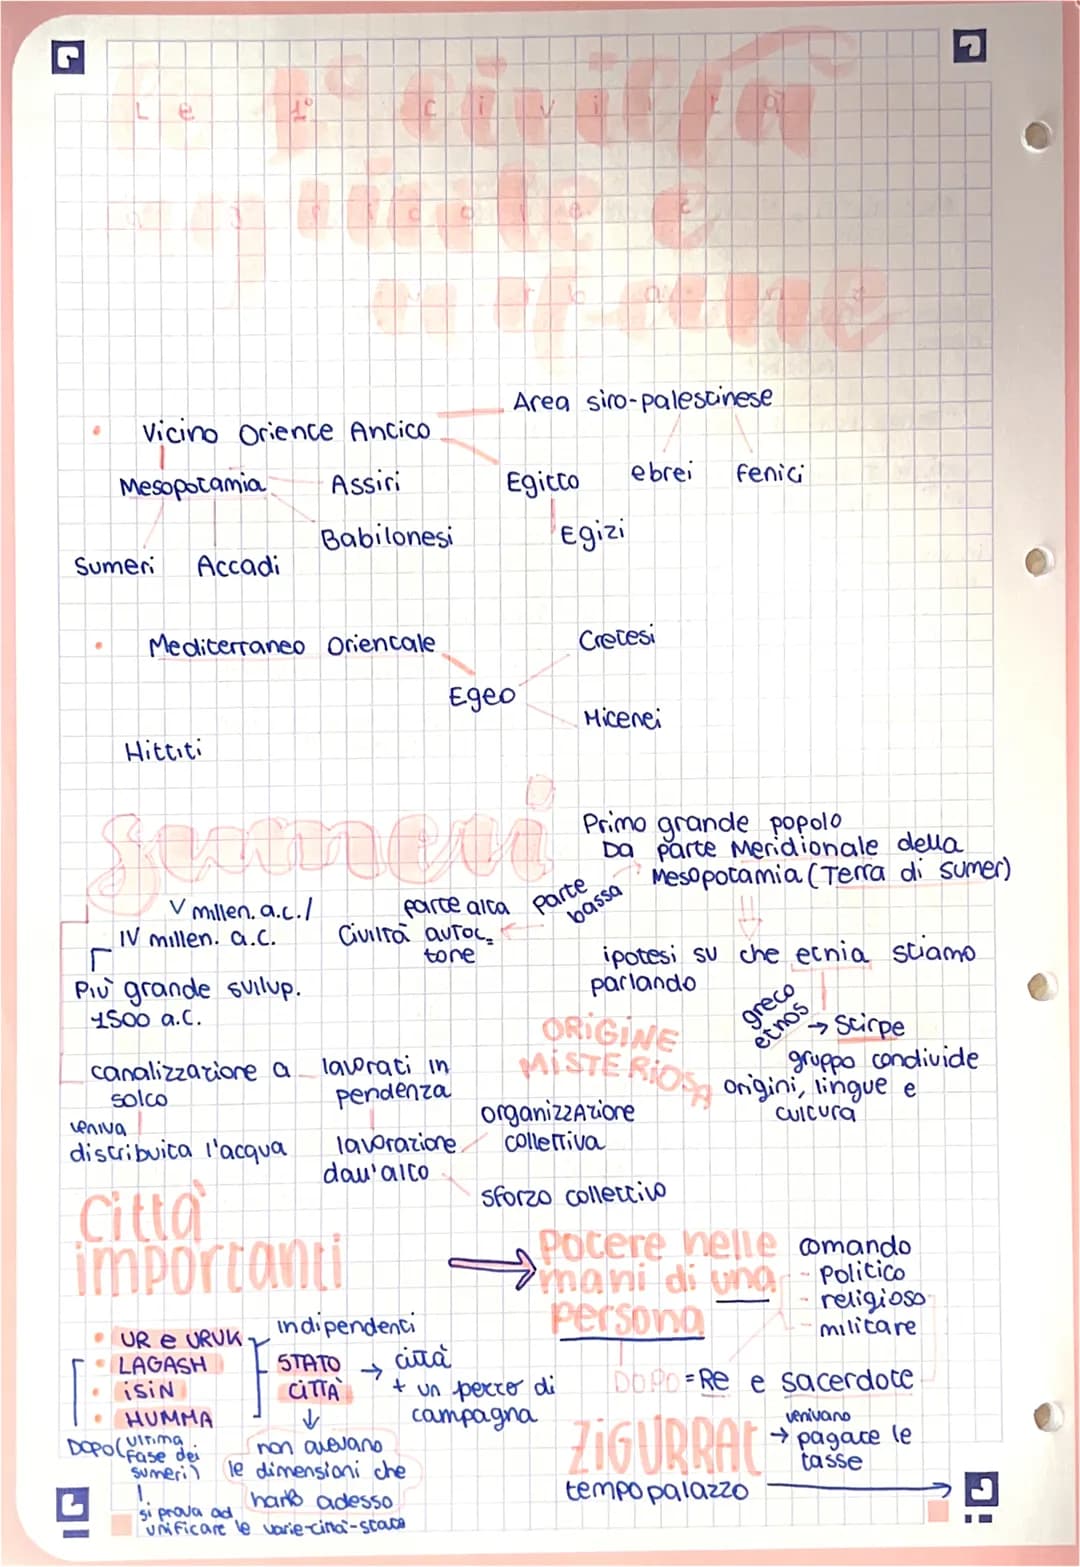 Le 1° civiltà
agricole e
urbane
Area siro-palestinese
• Vicino Oriente Antico
ebrei fenici
Mesopotamia Assiri Egitto
Babilonesi Egizi
Sumeri Accadi
• Mediterraneo Orientale Cretesi
Egeo
Micenei
Hittiti
sumeri
Primo grande popolo
Da parte Meridionale della
Mesopotamia (Terra di sumer)
parte alta parte bassa
V millen. a.c./
IV millen. a.c.
Civiltà autoc=
tone
Più grande svilup.
1500 a.C.
ipotesi su che etnia stiamo
parlando
greco
etnos
→ Stirpe
gruppo condivide
origini, lingue e
cultura
ORIGINE
MISTERIOSA
canalizzazione a
solco
lavorati in
pendenza
veniva
distribuita l'acqua
lavorazione
dall'alto
organizzazione
collettiva
sforzo collettivo
Città
importanti
Potere nelle
mani di una
persona
comando
- politico
- religioso
- militare
• UR e URUK
• LAGASH
• ISIN
• HUMMA
indipendenti
STATO
CITTÀ
→ città
+ un pezzo di
campagna
DOPO = Re e sacerdote
DOPO (ultima
fase dei
sumeri)
si prova ad
unificare le varie città-stato
non avevano
le dimensioni che
hanno adesso
ZIGURRAT
tempo palazzo
venivano
→ pagate le
tasse